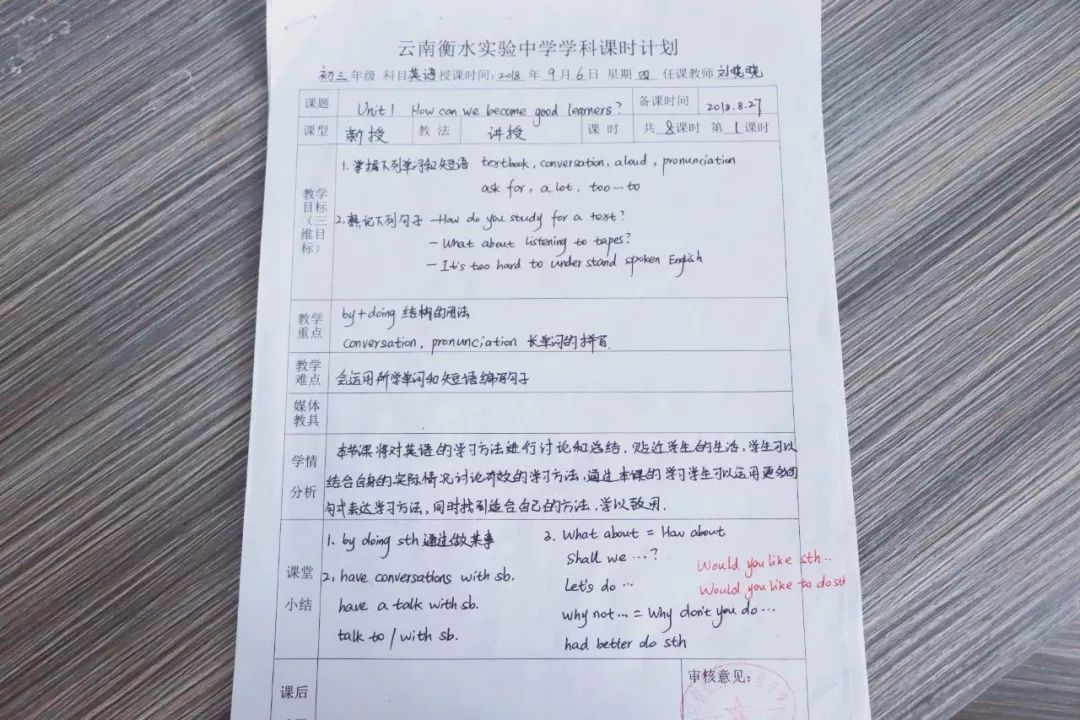 云南衡水实验中学学科课时计划
初三年级 科目英语授课时间:2018 年 9月6日 星期四 任课教师刘晓晓
课题 Unit 1 How can we become good learners? 备课时间 2018.8.27
课型 新授 教法 讲授 课时 共8课时 第1课时
教学目标(三维目标)
1.掌握下列单词和短语 textbook, conversation, aloud, pronunciation
ask for, a lot, too…to
2.熟记下列句子 —How do you study for a text?
—What about listening to tapes?
—It's too hard to understand spoken English
教学重点
by+doing 结构的用法
conversation, pronunciation 长单词的拼写.
教学难点 会运用所学单词和短语编写句子
媒体教具
学情分析
本节课将对英语的学习方法进行讨论和总结,贴近学生的生活,学生可以
结合自身的实际情况讨论有效的学习方法,通过本课的学习学生可以运用更多的
句式表达学习方法,同时找到适合自己的方法,学以致用.
课堂小结
1. by doing sth 通过做某事
2, have conversations with sb.
have a talk with sb.
talk to / with sb.
3. What about = How about
Shall we …?
Let's do …
why not … = Why don't you do …
had better do sth
Would you like sth ..
Would you like to do sth
课后
审核意见: